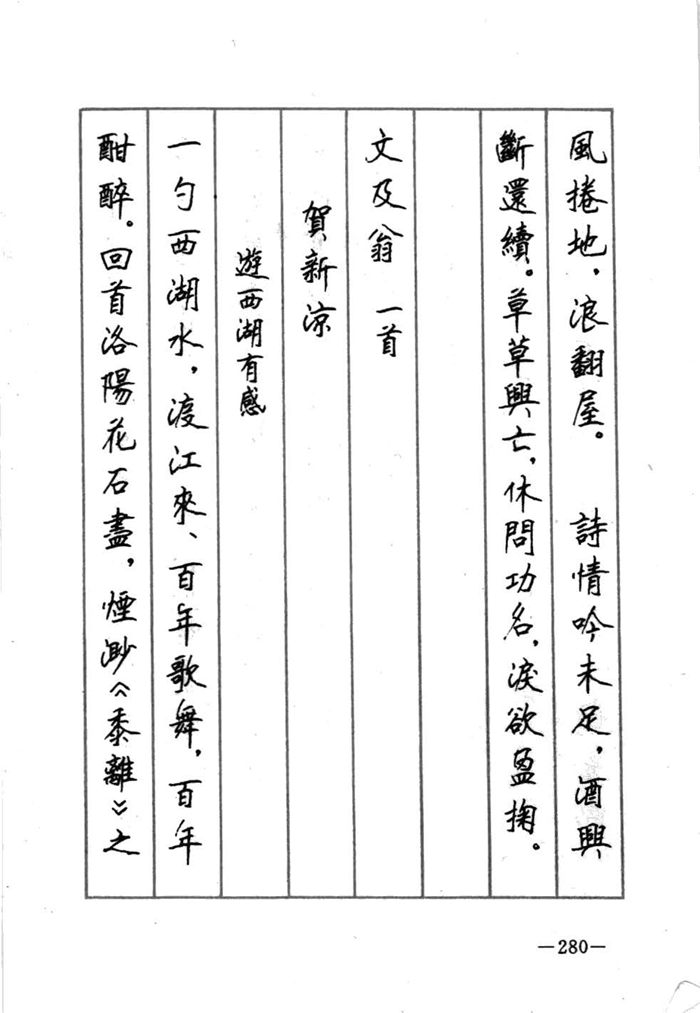 風捲地，浪翻屋。　詩情吟未足，酒興
斷還續。草草興亡，休問功名，淚欲盈掬。
文及翁　一首
賀新凉
遊西湖有感
一勺西湖水，渡江來、百年歌舞，百年
酣醉。回首洛陽花石盡，煙渺《黍離》之
—280—